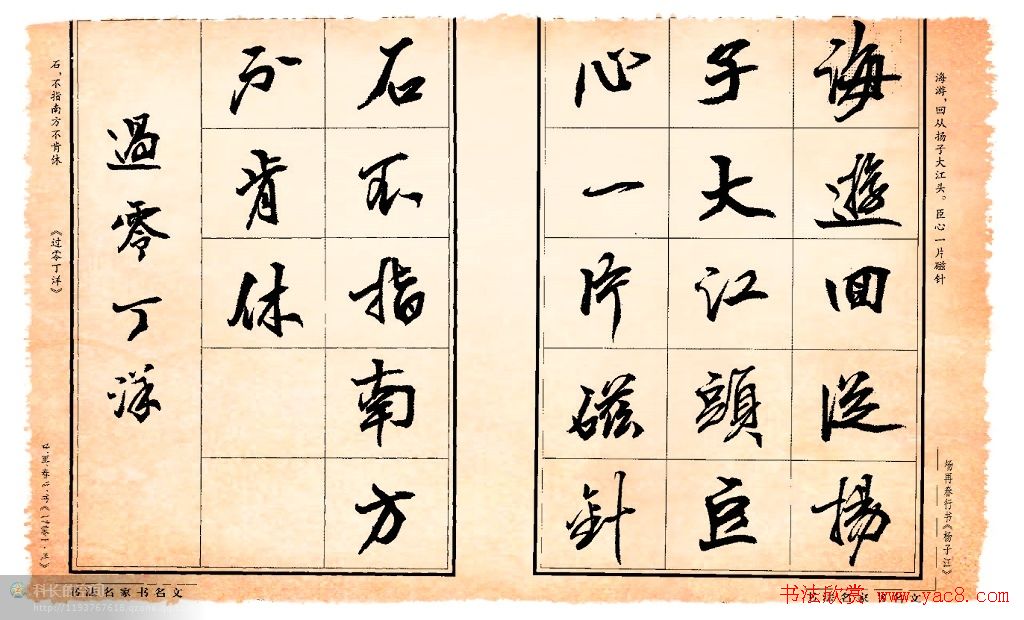 海游，回从扬子大江头。臣心一片磁针
杨再春行书《杨子江》
海遊回從揚
子大江頭臣
心一片磁針
石不指南方
不肯休
過零丁洋
石，不指南方不肯休
《过零丁洋》
书法名家书名文
书法名家书名文
科长的
http://1193767618.qzone
书法欣赏 www.yac8.com